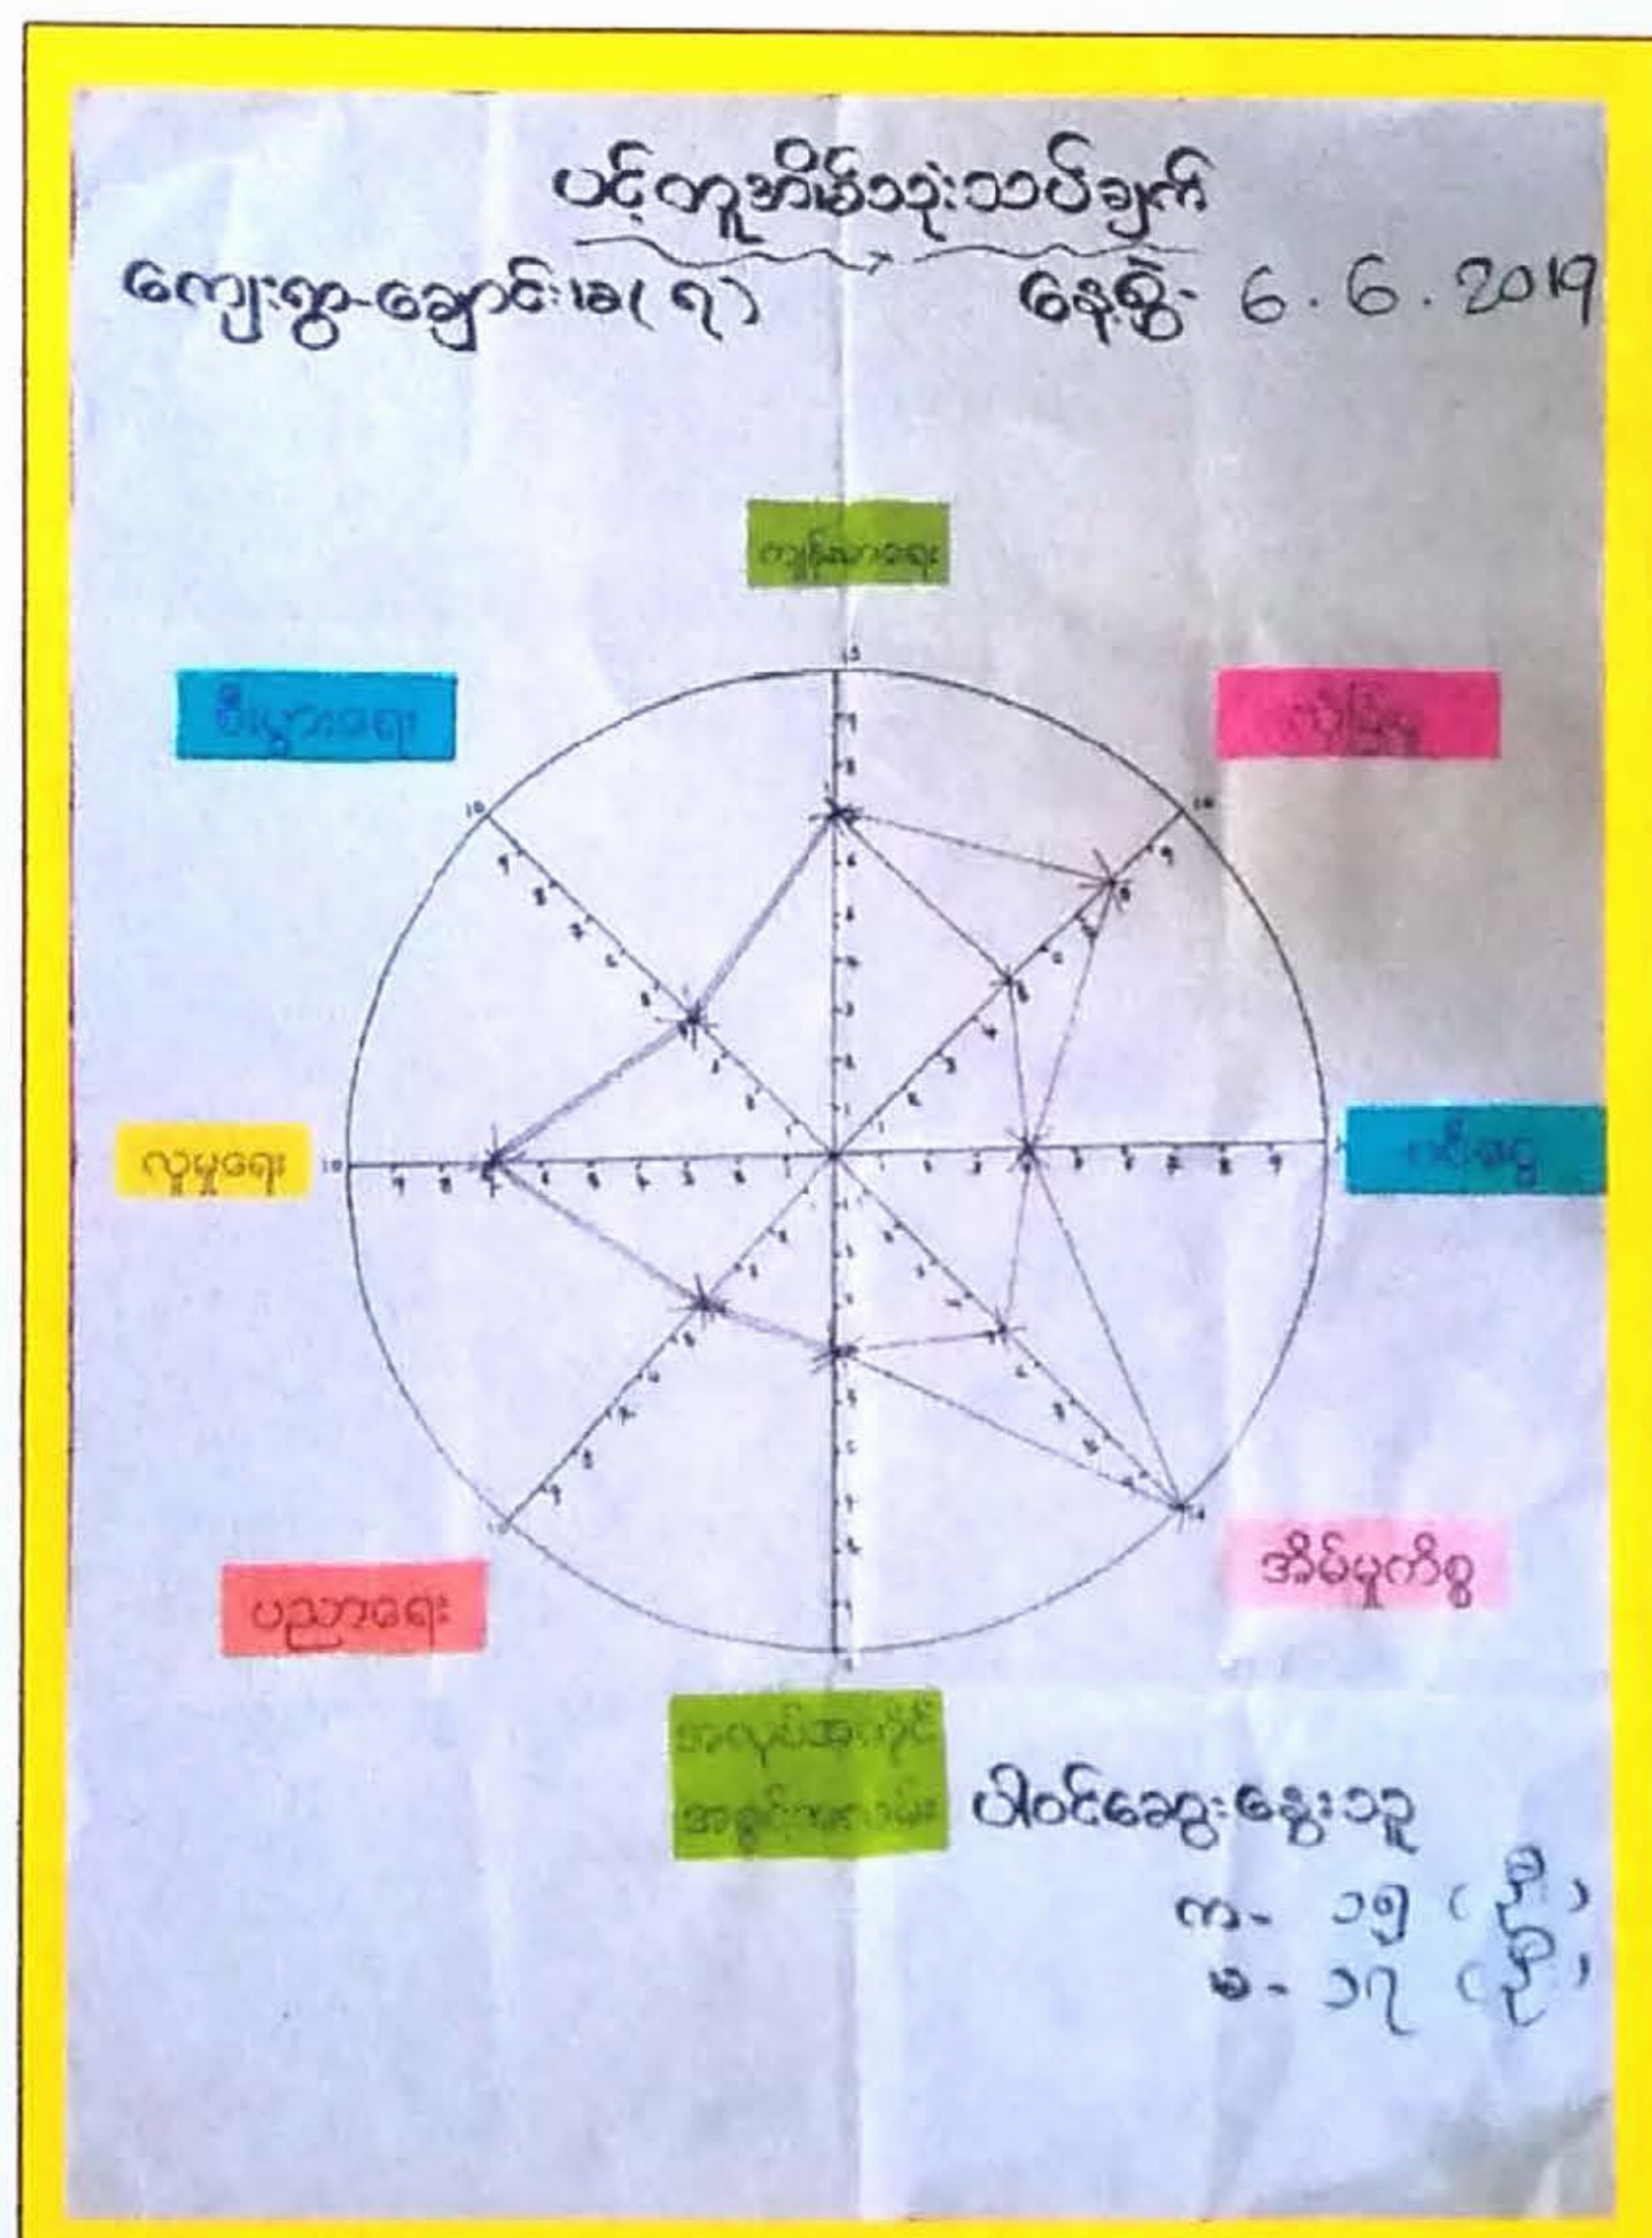 ပင့်ကူအိမ်သုံးသပ်ချက်
ကျေးရွာ-ချောင်း၊ခ(ရ)
နေ့စွဲ- 6.6.2019
ကျန်းမာရေး
စီးပွားရေး
လူမှုရေး
ပညာရေး
အိမ်မှုကိစ္စ
အလုပ်အကိုင်
အခွင့်အလမ်း
ပါဝင်ဆွေးနွေးသူ
က- ၁၅ (ဦး)
မ- ၁၇ (ဦး)